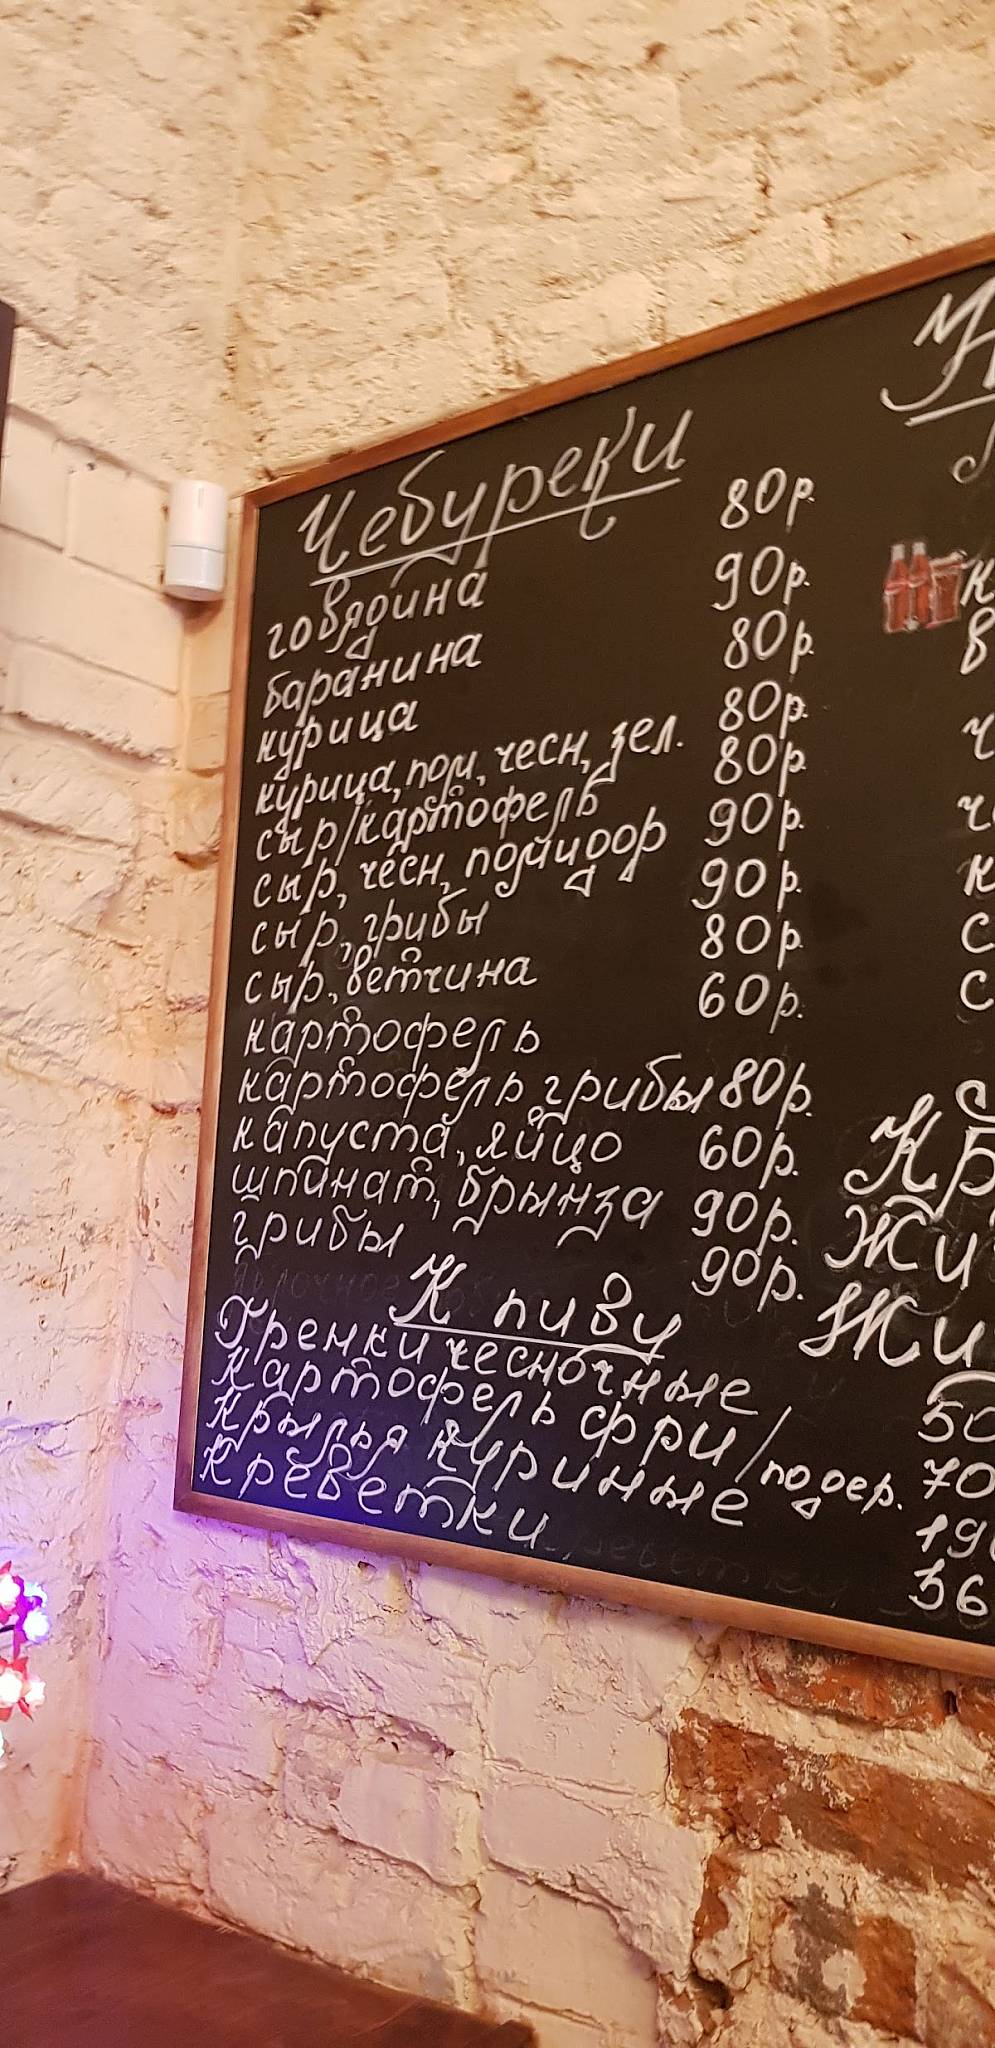 Чебуреки
говядина 80р.
баранина 90р.
курица 80р.
курица, пом, чесн, зел. 80р.
сыр/картофель 80р.
сыр, чесн, помидор 90р.
сыр, грибы 90р.
сыр, ветчина 80р.
картофель 60р.
картофель, грибы 80р.
капуста, яйцо 60р.
шпинат, брынза 90р.
грибы 90р.
К пиву
Гренки чесночные 50
Картофель фри/по дер. 70
Крылья куриные 190
Креветки 36